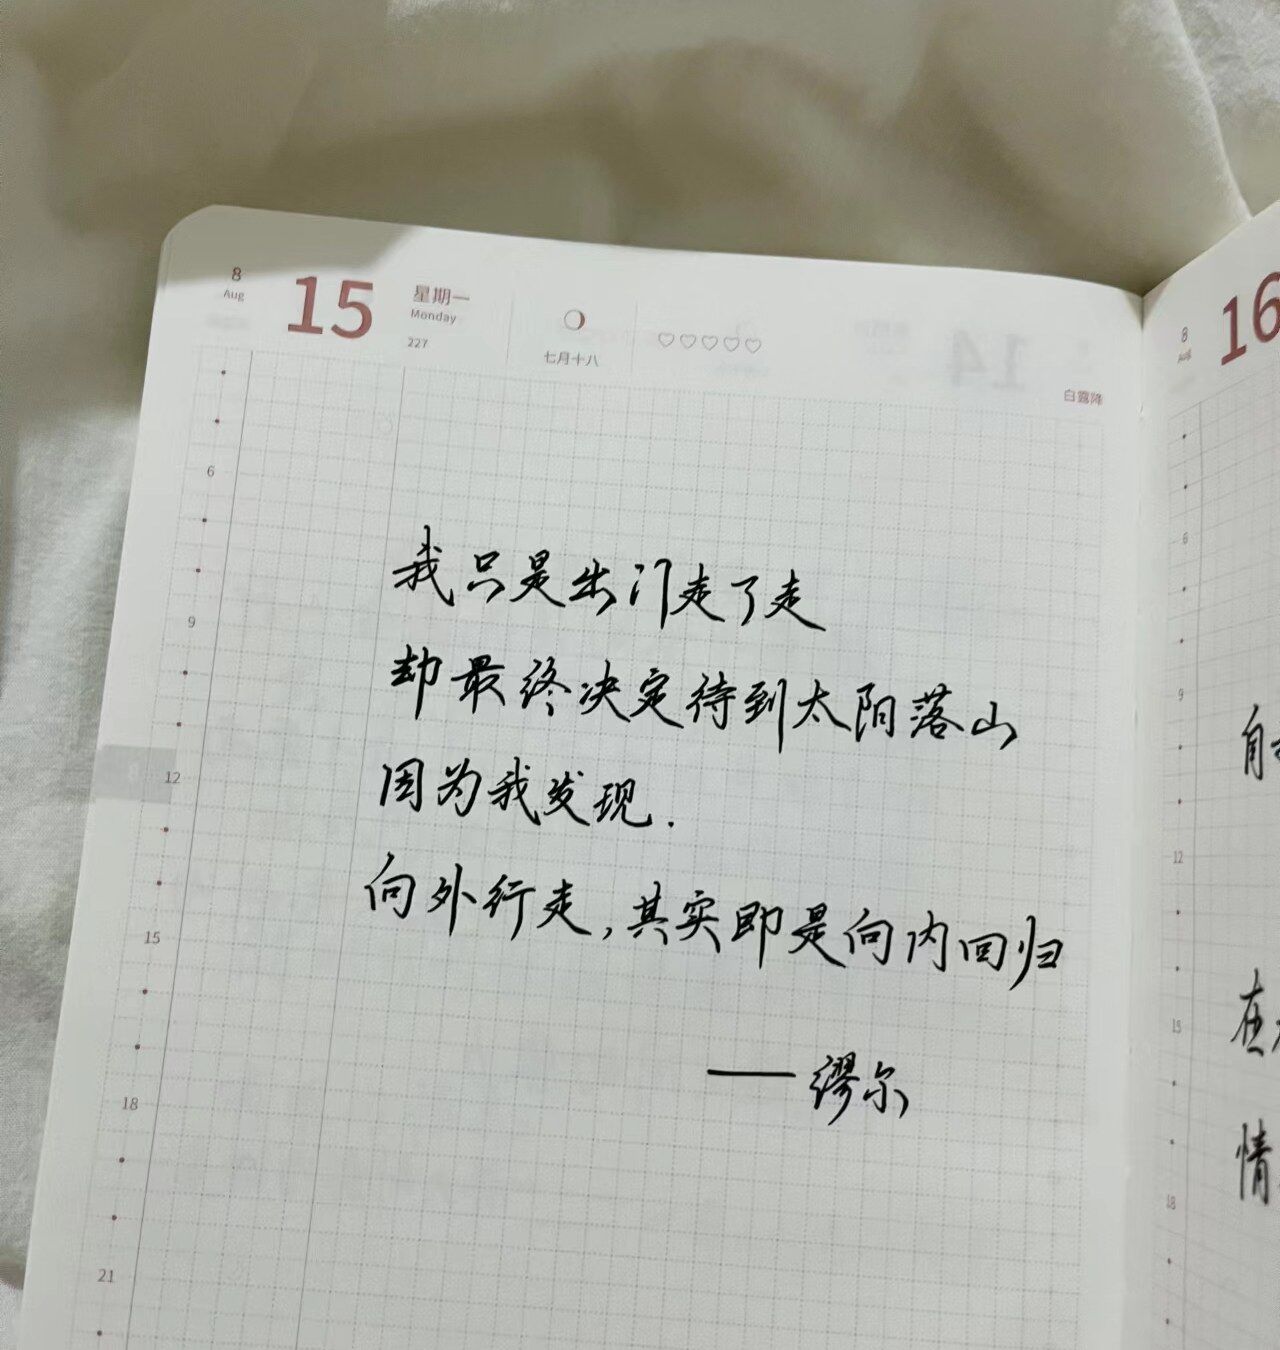 8
Aug
15
星期一
Monday
227
七月十八
白露降
6
9
12
15
18
21
我只是出门走了走
却最终决定待到太阳落山
因为我发现.
向外行走,其实即是向内回归
——缪尔
8
Aug
16
6
9
12
15
18
自
在
情